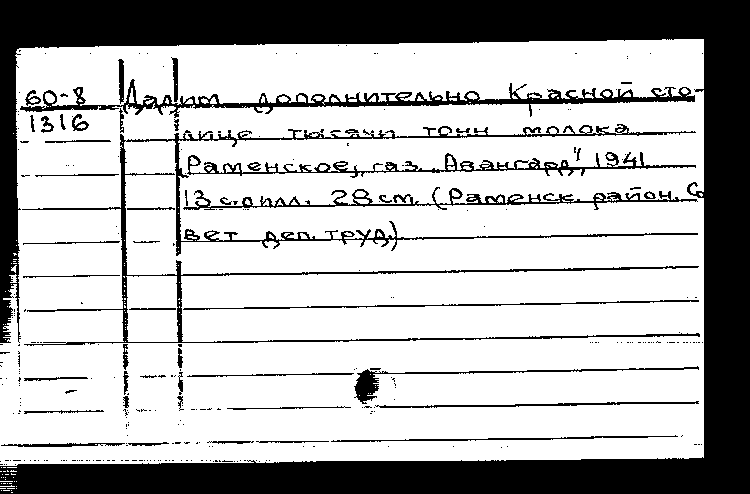 60-8 Дадим дополнительно Красной сто-
1316 лице тысячи тонн молока
Раменское, газ. „Авангард", 1941.
13 с. с илл. 28 см. (Раменск. район. Со
вет деп. труд.)